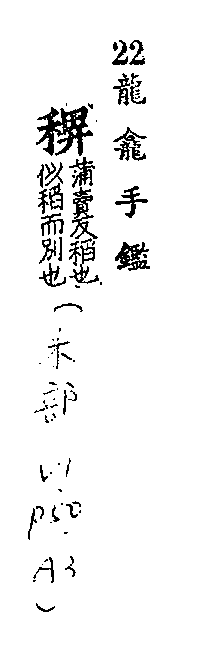 22龍龕手鑑
稗
蒲賣反稻也
似稻而別也
(禾部
P50.
A3)